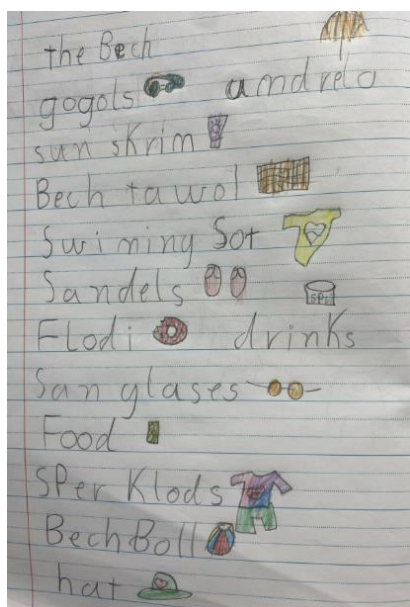 the Bech
gogols amdrela
sun skrim
Bech tawol
Swiming Sot
Sandels
Flodi drinks
San glases
Food
SPer Klods
BechBoll
hat